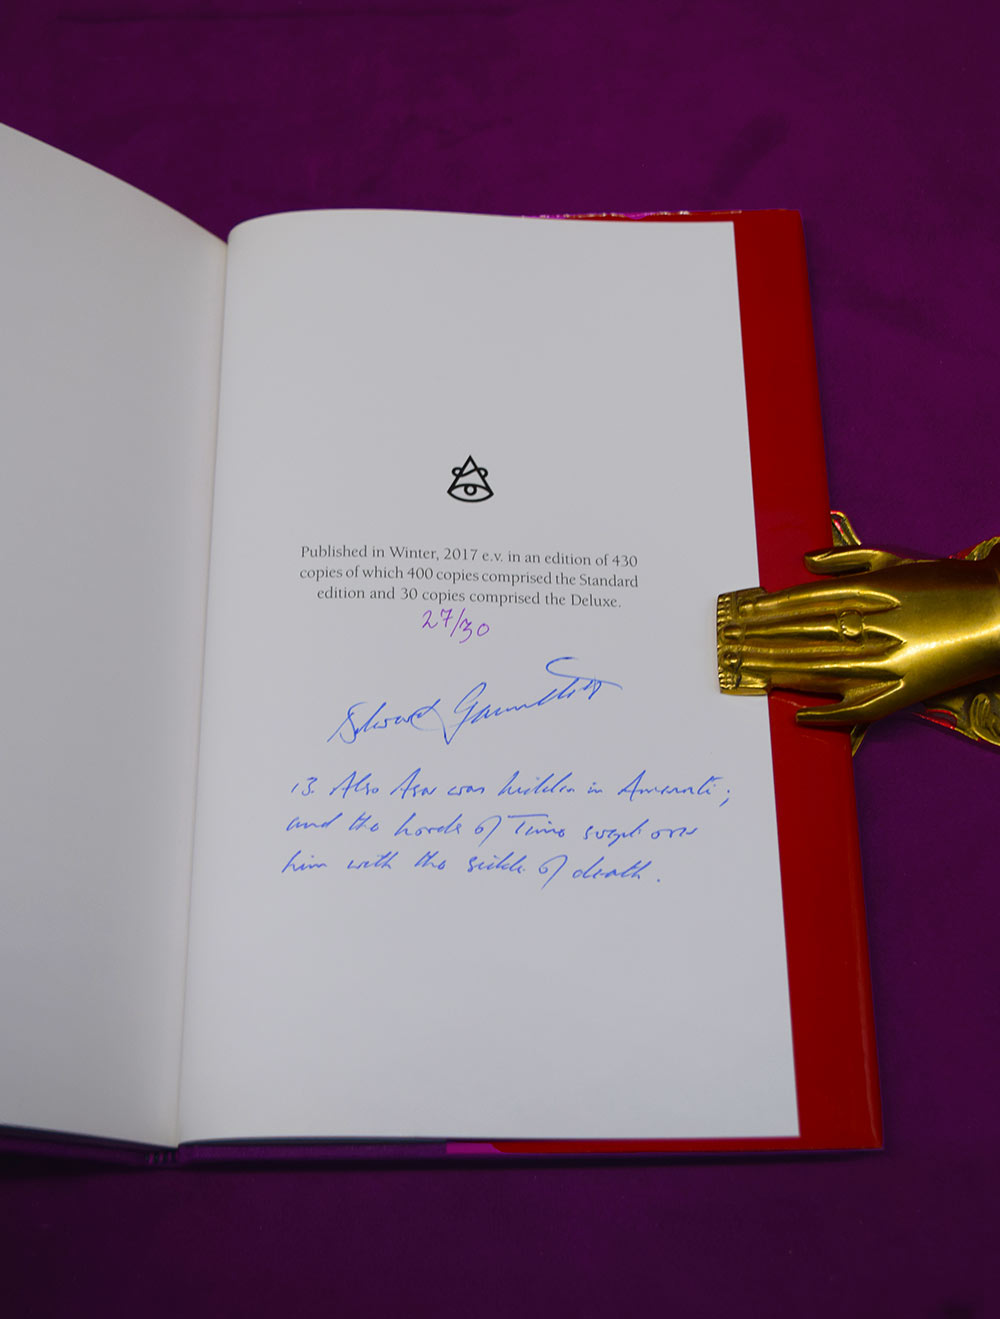 Published in Winter, 2017 e.v. in an edition of 430
copies of which 400 copies comprised the Standard
edition and 30 copies comprised the Deluxe.
27/30
Edward Gauntlett
13. Also Asar was hidden in Amennti;
and the Lords of Time swept over
him with the sickle of death.